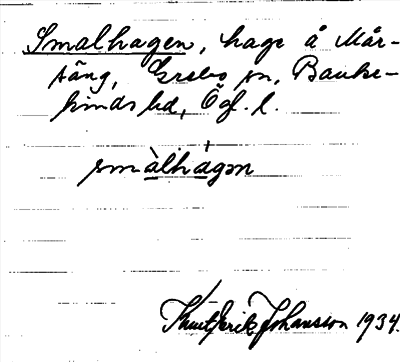 Smalhagen, hage å Mår-
täng, Ekeby sn, Banke-
kinds hd, Ögl. l.
smàlhágən
Knut Erik Johansson 1934.